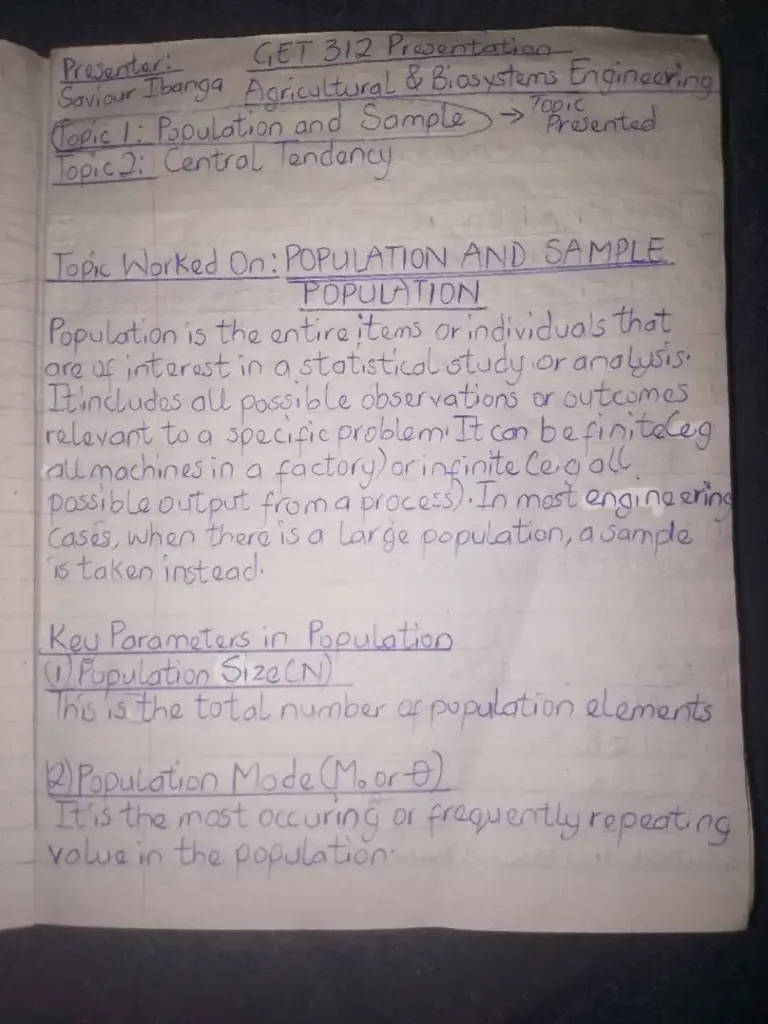 GET 312 Presentation
Presenter:
Saviour Ibanga Agricultural & Biosystems Engineering
Topic 1: Population and Sample → Topic Presented
Topic 2: Central Tendency
Topic Worked On: POPULATION AND SAMPLE
POPULATION
Population is the entire items or individuals that
are of interest in a statistical study or analysis.
It includes all possible observations or outcomes
relevant to a specific problem. It can be finite(e.g
all machines in a factory) or infinite (e.g all
possible output from a process). In most engineering
cases, when there is a large population, a sample
is taken instead.
Key Parameters in Population
(1) Population Size(N)
This is the total number of population elements
(2) Population Mode (Mo or θ)
It is the most occuring or frequently repeating
value in the population.